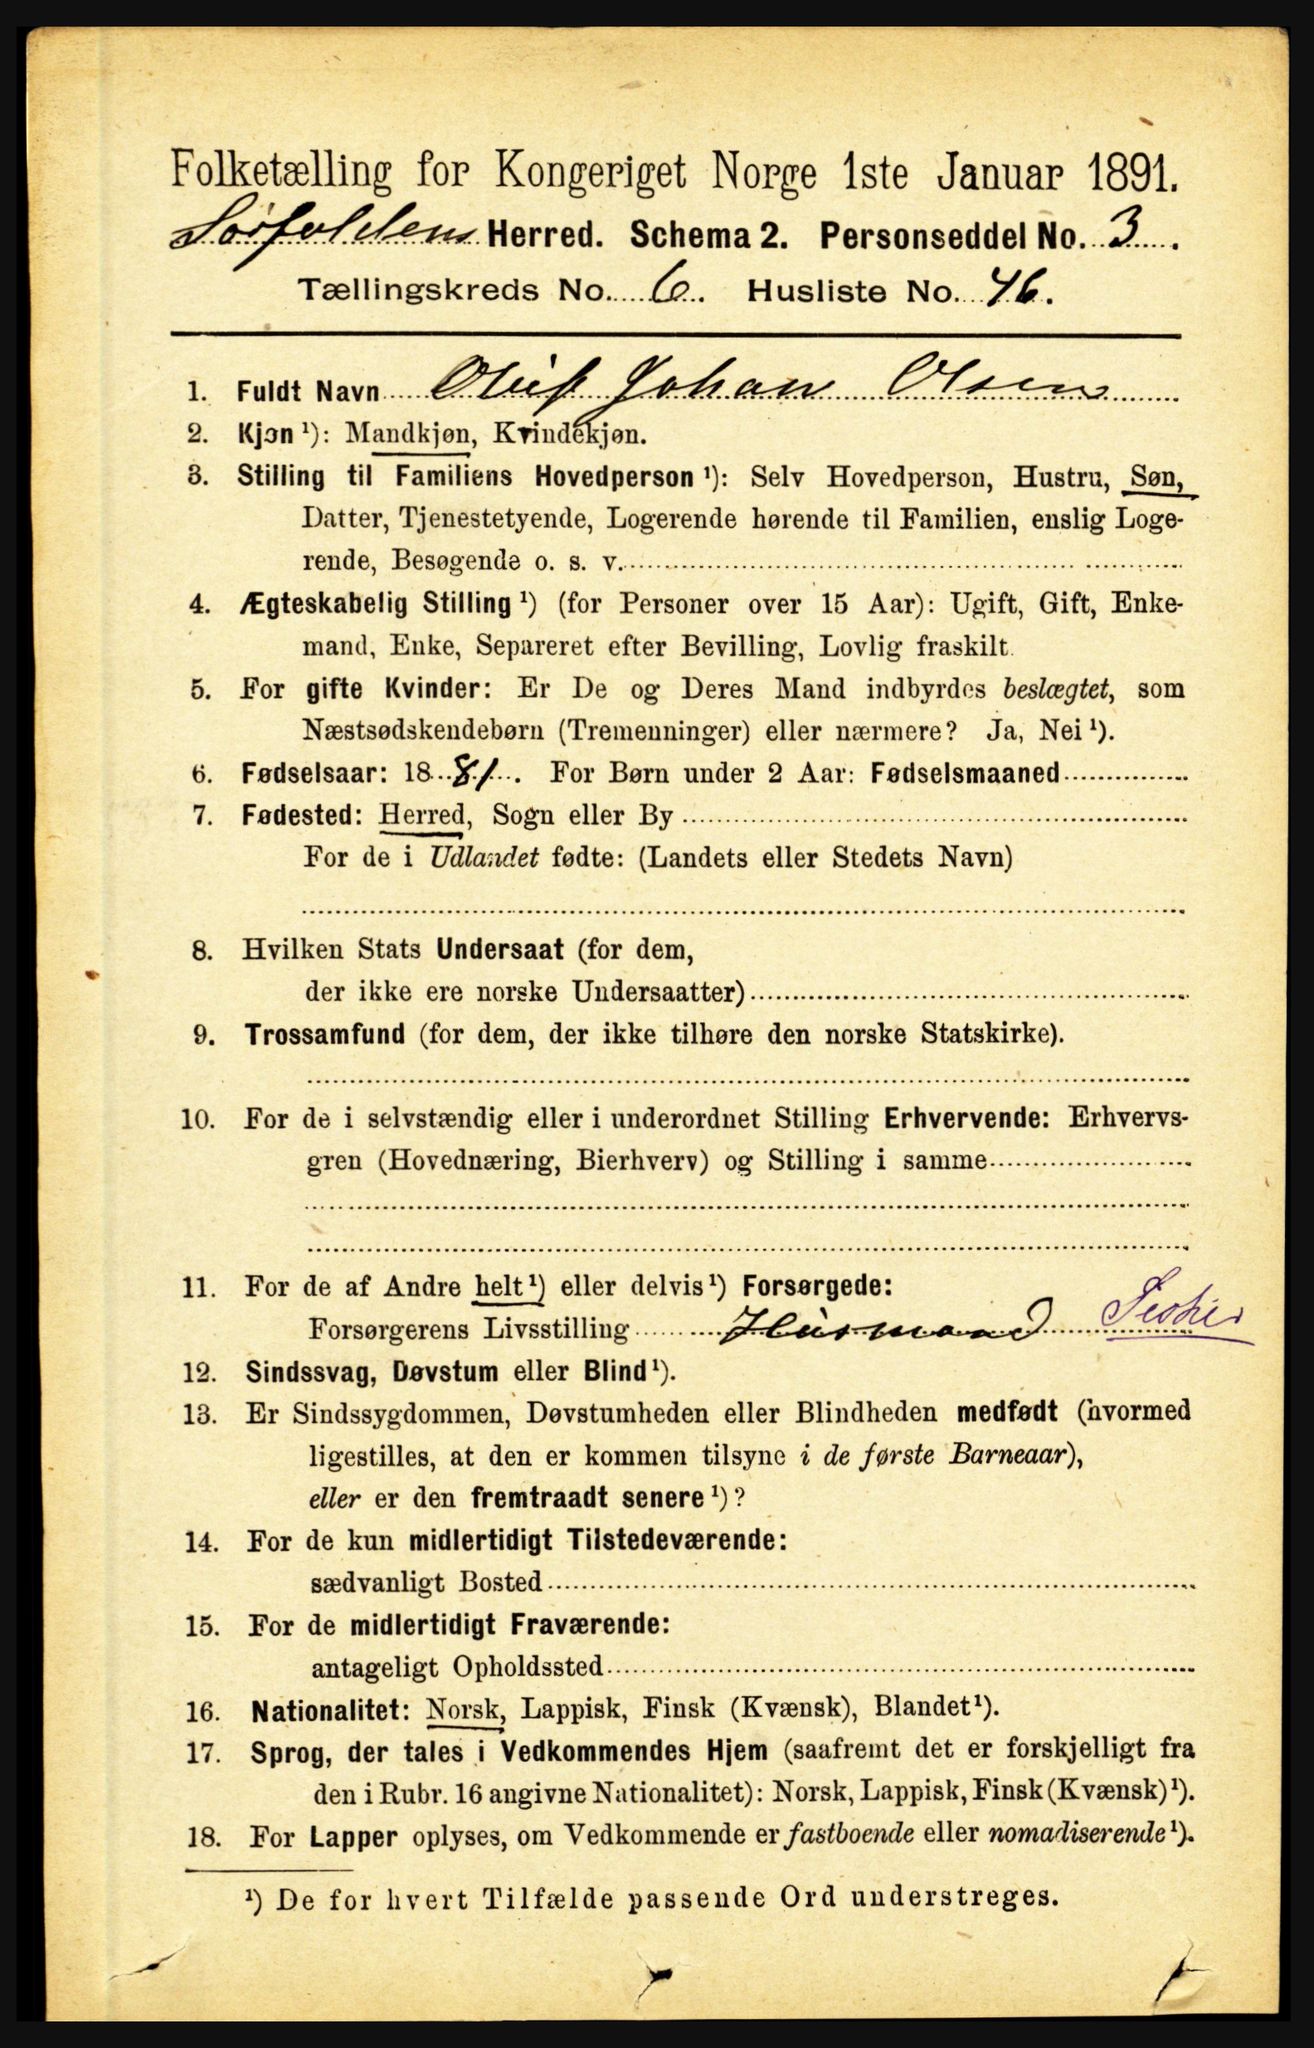 Folketælling for Kongeriget Norge 1ste Januar 1891.
Sørfoldens Herred. Schema 2. Personseddel No. 3.
Tællingskreds No. 6. Husliste No. 46.
1. Fuldt Navn Oluf Johan Olsen
2. Kjøn ¹): Mandkjøn, Kvindekjøn.
3. Stilling til Familiens Hovedperson ¹): Selv Hovedperson, Hustru, Søn,
Datter, Tjenestetyende, Logerende hørende til Familien, enslig Loge-
rende, Besøgende o. s. v.
4. Ægteskabelig Stilling ¹) (for Personer over 15 Aar): Ugift, Gift, Enke-
mand, Enke, Separeret efter Bevilling, Lovlig fraskilt.
5. For gifte Kvinder: Er De og Deres Mand indbyrdes beslægtet, som
Næstsødskendebørn (Tremenninger) eller nærmere? Ja, Nei ¹).
6. Fødselsaar: 1881. For Børn under 2 Aar: Fødselsmaaned
7. Fødested: Herred, Sogn eller By
For de i Udlandet fødte: (Landets eller Stedets Navn)
8. Hvilken Stats Undersaat (for dem,
der ikke ere norske Undersaatter)
9. Trossamfund (for dem, der ikke tilhøre den norske Statskirke).
10. For de i selvstændig eller i underordnet Stilling Erhvervende: Erhvervs-
gren (Hovednæring, Bierhverv) og Stilling i samme
11. For de af Andre helt ¹) eller delvis ¹) Forsørgede:
Forsørgerens Livsstilling Husmand Fisker
12. Sindssvag, Døvstum eller Blind ¹).
13. Er Sindssygdommen, Døvstumheden eller Blindheden medfødt (hvormed
ligestilles, at den er kommen tilsyne i de første Barneaar),
eller er den fremtraadt senere ¹)?
14. For de kun midlertidigt Tilstedeværende:
sædvanligt Bosted
15. For de midlertidigt Fraværende:
antageligt Opholdssted
16. Nationalitet: Norsk, Lappisk, Finsk (Kvænsk), Blandet ¹).
17. Sprog, der tales i Vedkommendes Hjem (saafremt det er forskjelligt fra
den i Rubr. 16 angivne Nationalitet): Norsk, Lappisk, Finsk (Kvænsk) ¹).
18. For Lapper oplyses, om Vedkommende er fastboende eller nomadiserende ¹).
¹) De for hvert Tilfælde passende Ord understreges.